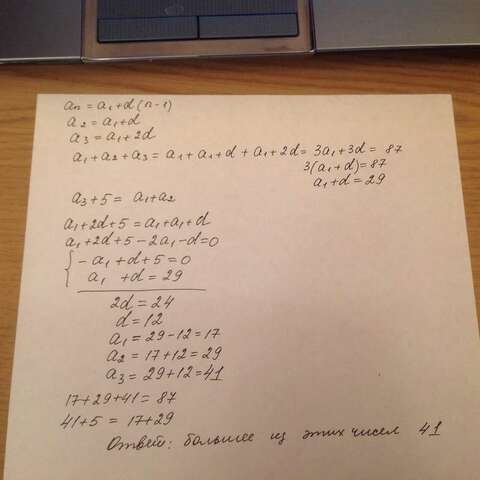 an = a1+d(n-1)
a2 = a1+d
a3 = a1+2d
a1+a2+a3 = a1+a1+d+a1+2d = 3a1+3d = 87
3(a1+d)=87
a1+d=29
a3+5 = a1+a2
a1+2d+5 = a1+a1+d
a1+2d+5-2a1-d=0
{ -a1+d+5=0
a1 +d=29
2d=24
d=12
a1=29-12=17
a2=17+12=29
a3=29+12=41
17+29+41=87
41+5 = 17+29
Ответ: большее из этих чисел 41